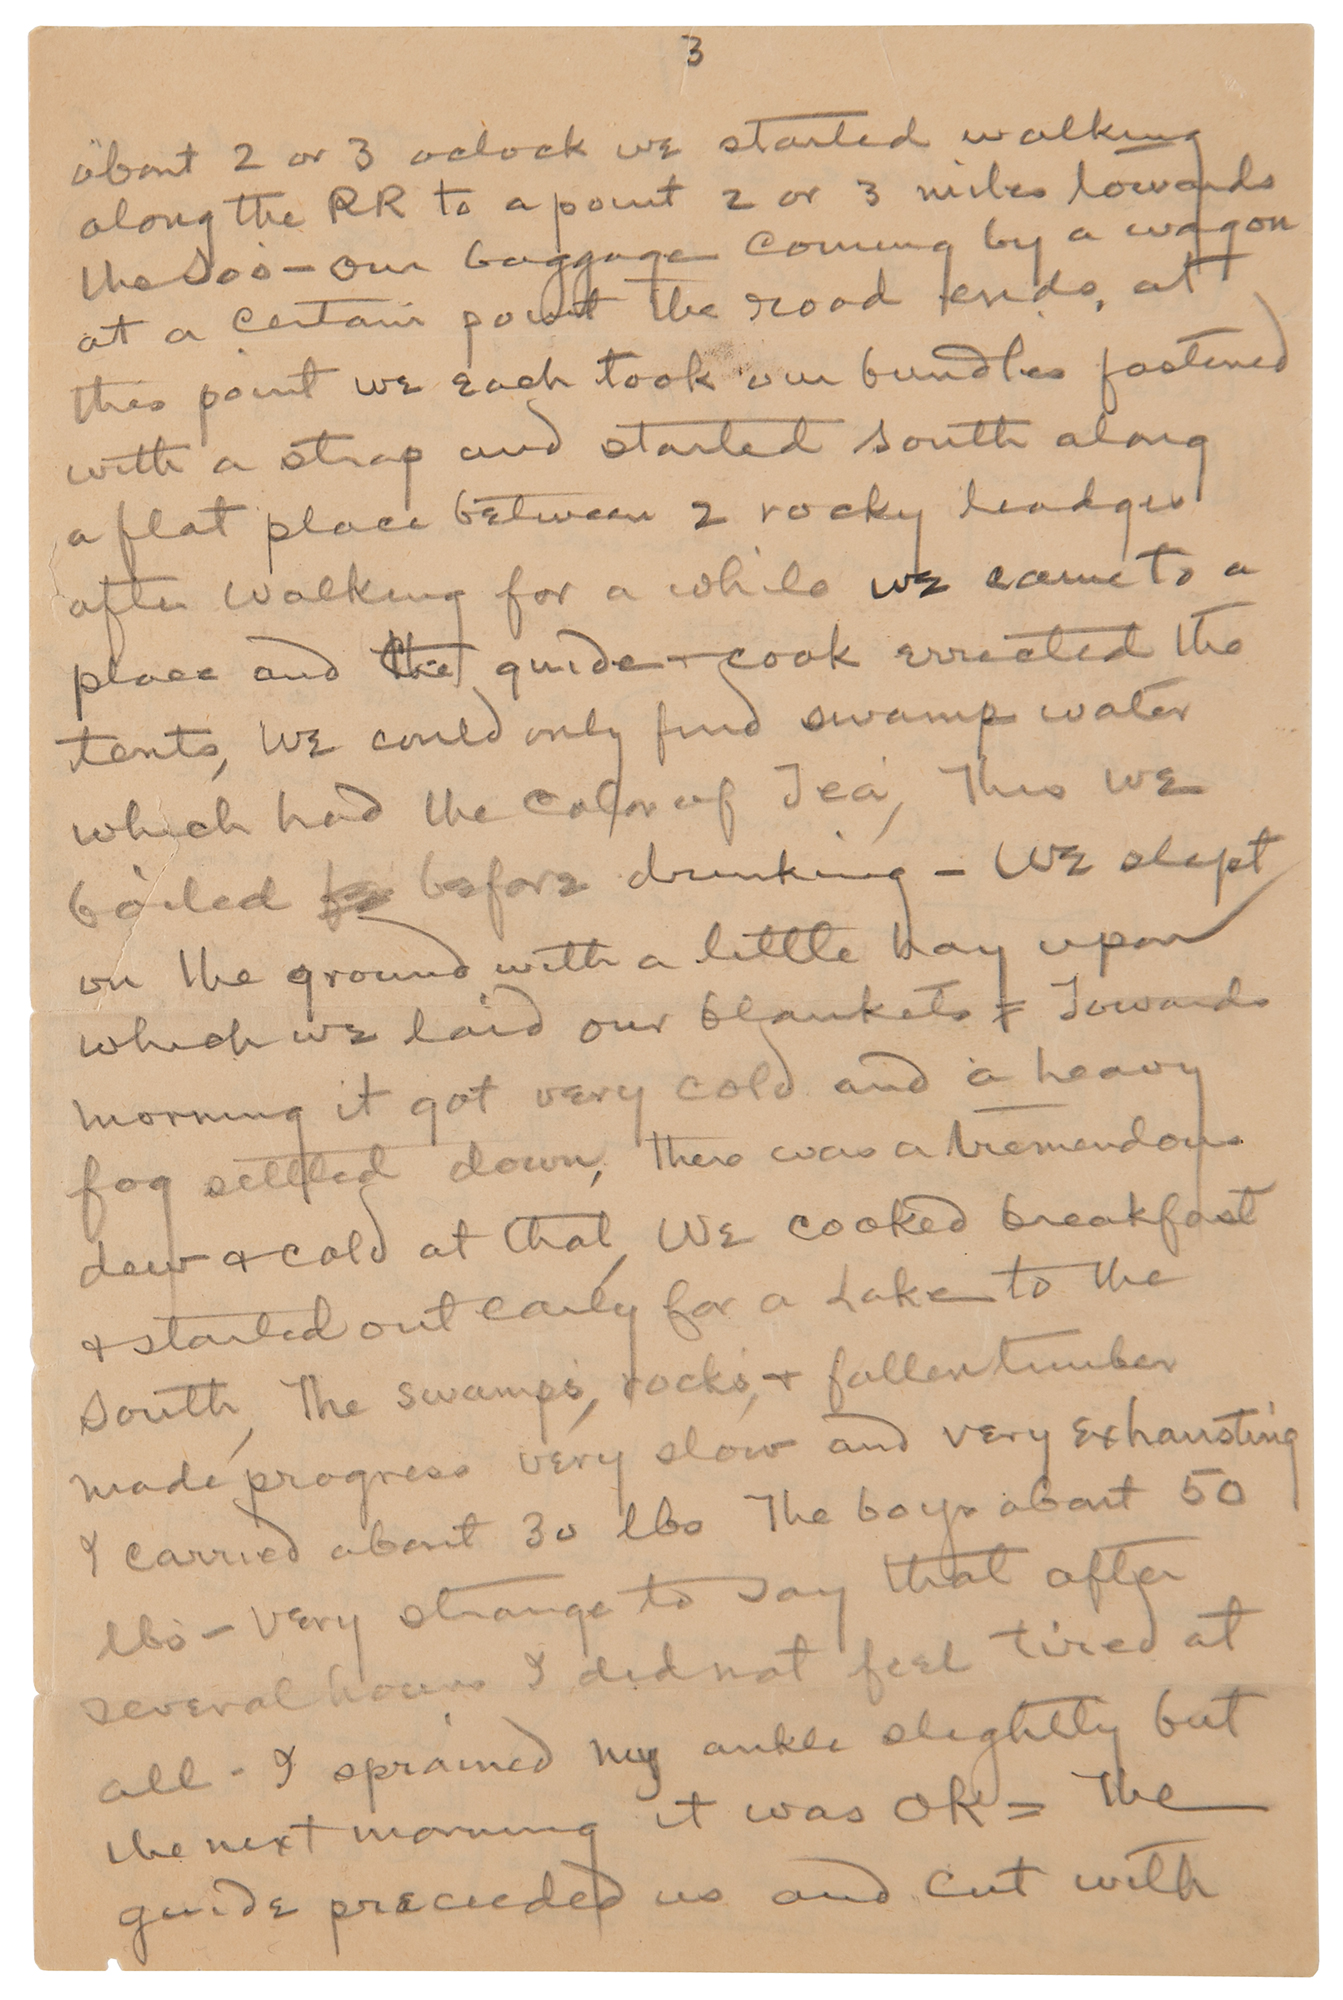 3
about 2 or 3 oclock we started walking
along the RR to a point 2 or 3 miles towards
the Soo — our baggage coming by a wagon
at a certain point the road ends, at
this point we each took our bundles fastened
with a strap and started south along
a flat place between 2 rocky leadges
after walking for a while we came to a
place and the guide + cook errected the
tents, We could only find swamp water
which had the color of Tea, This we
boiled before drinking — We slept
on the ground with a little hay upon
which we laid our blankets = Towards
morning it got very cold and a heavy
fog settled down, there was a tremendous
dew & cold at that, We cooked breakfast
& started out early for a Lake to the
South, The swamps, rocks, & fallen timber
made progress very slow and very exhausting
I carried about 30 lbs The boys about 50
lbs — Very strange to say that after
several hours I did not feel tired at
all - I sprained my ankle slightly but
the next morning it was OK = The
guide preceeded us and cut with